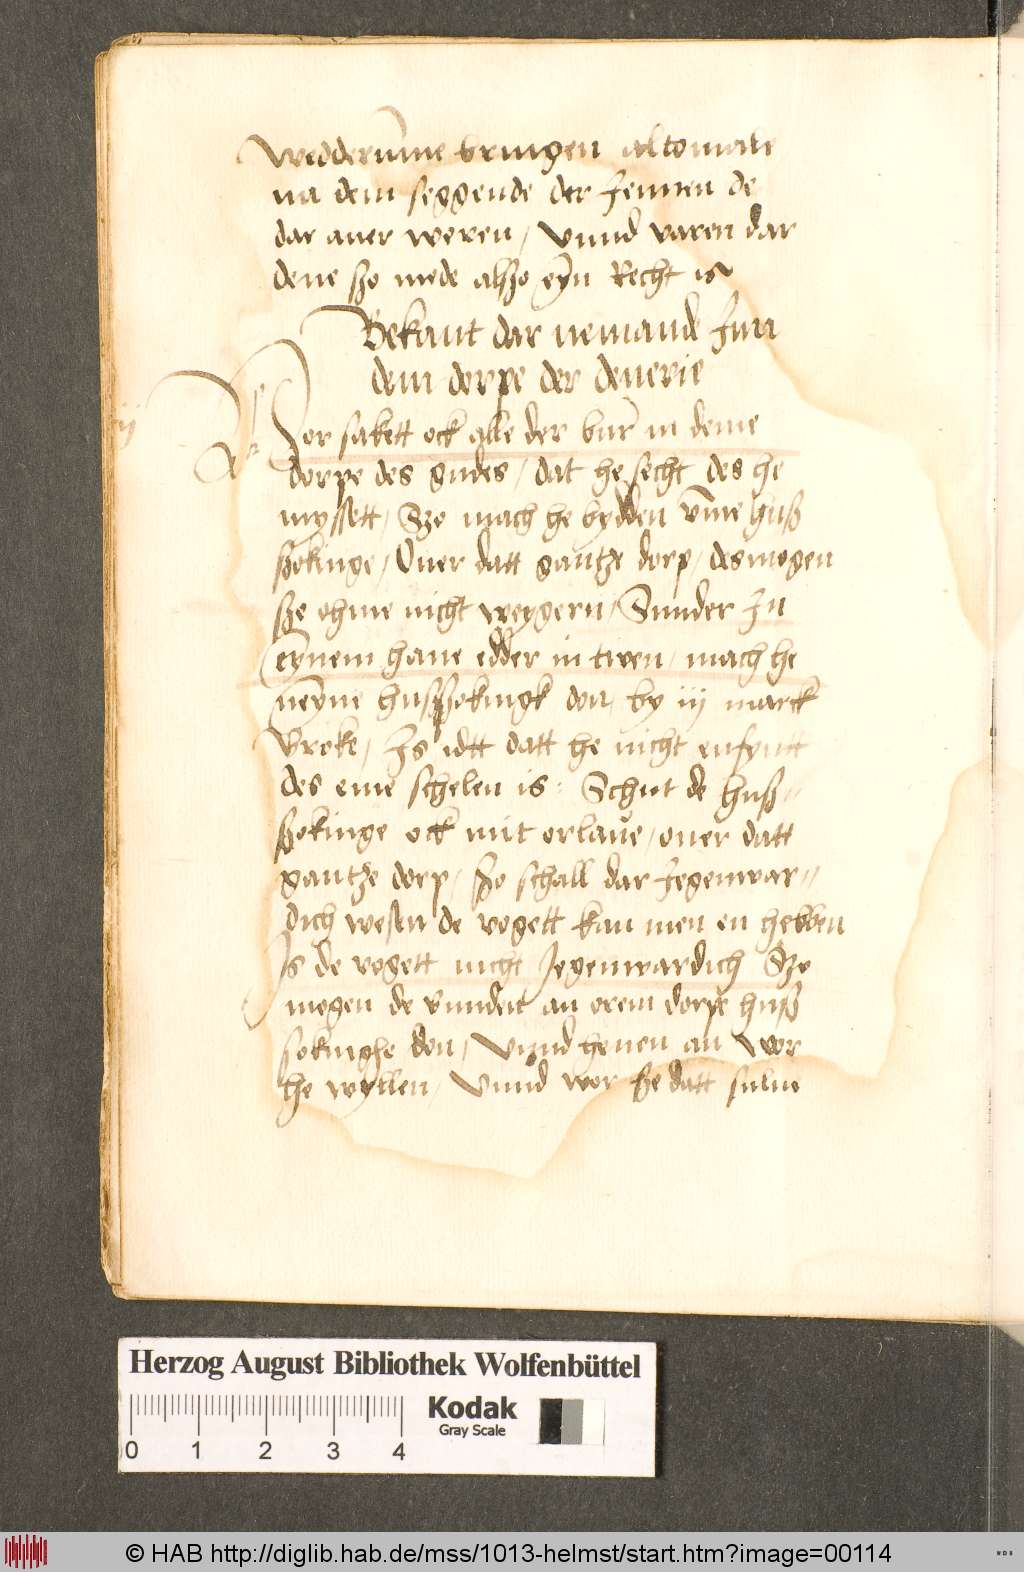 wedderumme bringen altomale
na dem seggende der Jennen de
dar auer weren / vnnd varen dar
dene szo mede alszo eyn Recht is
Bekant dar nemandt Inn
dem dorpe der deuerie
Vor sakett ock alle der bur in deme
dorpe des gudes / dat he secht des he
myssett / Szo mach he bydden vmme husz
szokinge / Ouer datt gantze dorp / des mogen
sze ohme nicht weygern / Sunder In
eynem haue edder in twen / mach he
neyne husszokingk don / by iij marck
Broke / Is idtt datt he nicht enfyntt
des eme schelen is : Schut de husz
szokinge ock mit orlaue / ouer datt
gantze dorp / szo schall dar Jegenwar
dich wesen de vogett kan men en hebben
Is de vogett nicht Jegenwardich Szo
mogen de vunden an orem dorpe husz
sokinghe don / Vnnd heuen an wor
he wyllen / Vnnd wor sze datt sulue
Herzog August Bibliothek Wolfenbüttel
Kodak
Gray Scale
0 1 2 3 4
© HAB http://diglib.hab.de/mss/1013-helmst/start.htm?image=00114